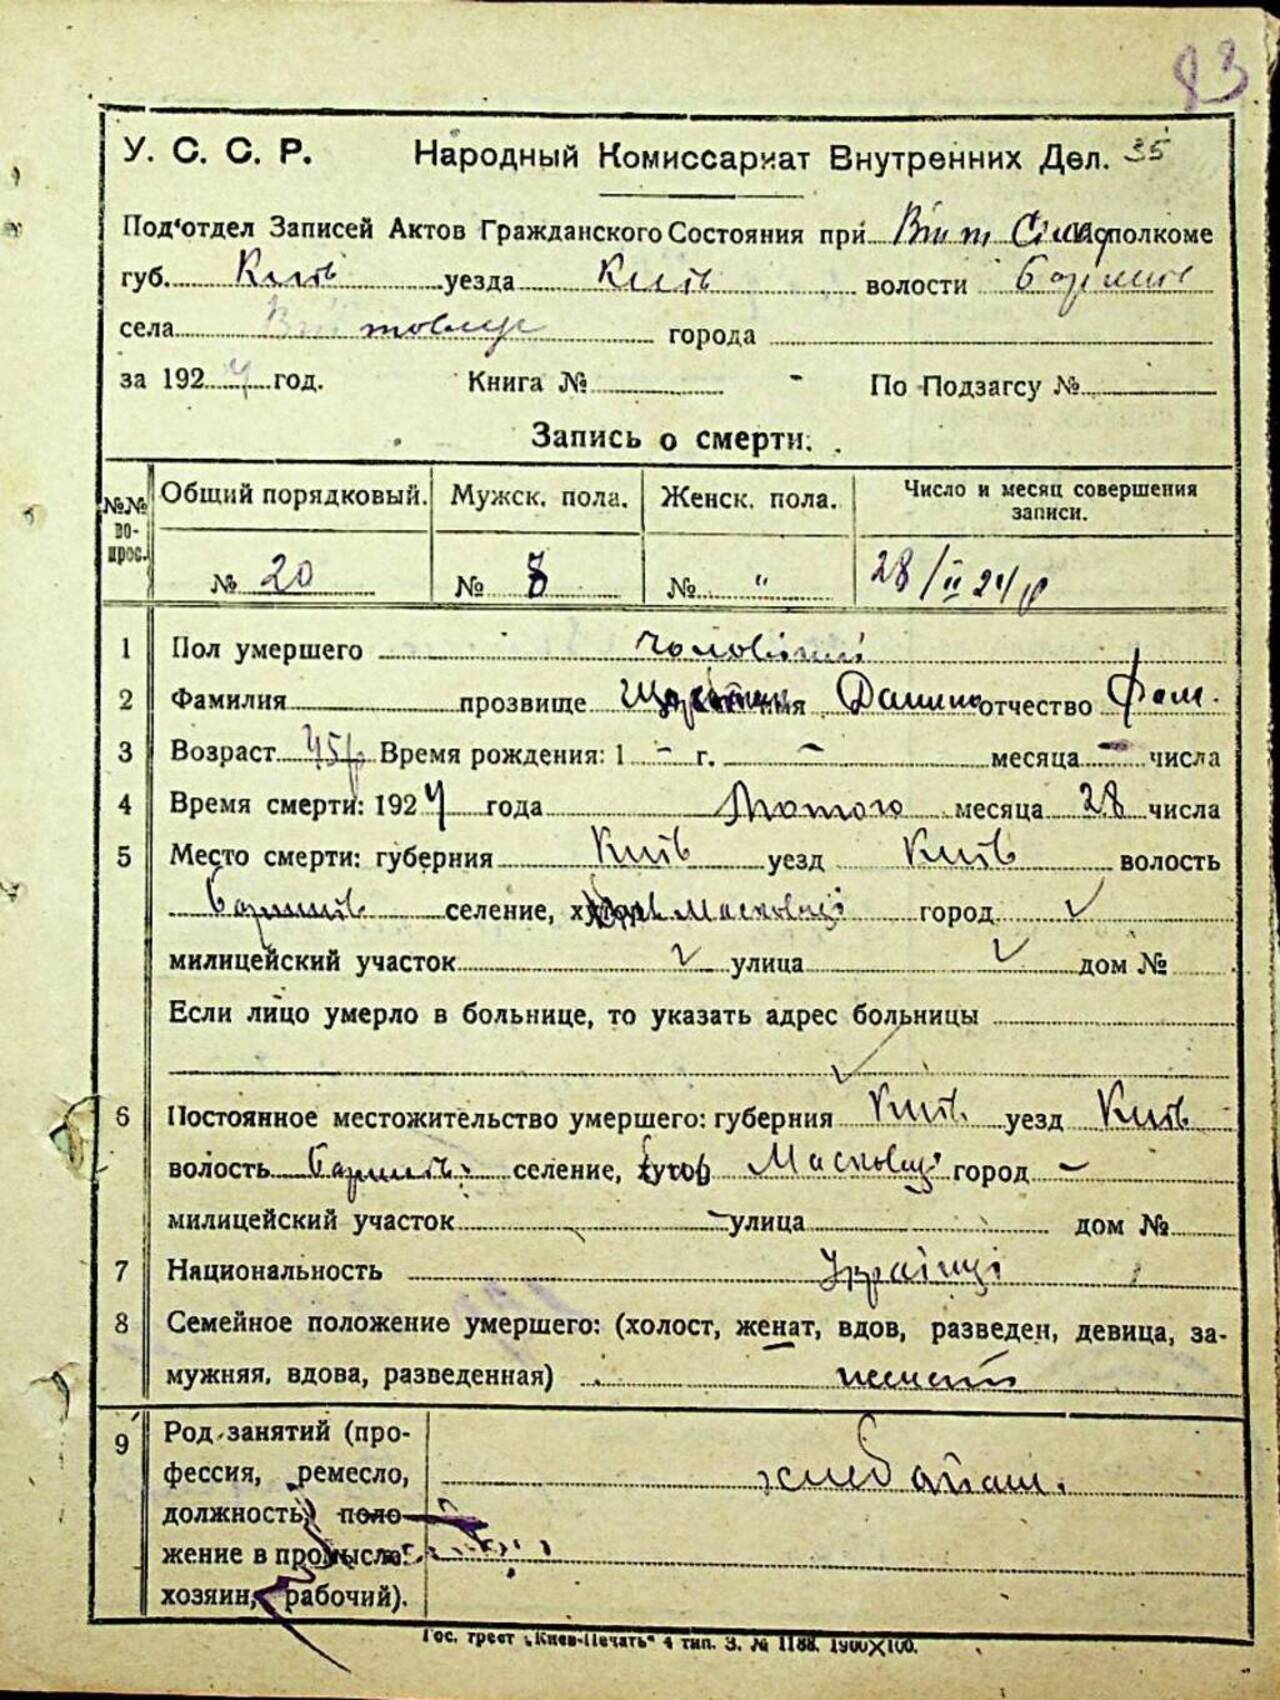 83
У. С. С. Р. Народный Комиссариат Внутренних Дел. 35
Под'отдел Записей Актов Гражданского Состояния при исполкоме
губ. Київ уезда Київ волости Баришів
села города
за 1924 год. Книга № - По Подзагсу №
Запись о смерти.
№№ вопрос. Общий порядковый. Мужск. пола. Женск. пола. Число и месяц совершения записи.
№ 20 № 8 № " 28/II 24 р
1 Пол умершего чоловічий
2 Фамилия прозвище имя Данило отчество Фом.
3 Возраст 45 р Время рождения: 1 - г. - месяца - числа
4 Время смерти: 1924 года Лютого месяца 28 числа
5 Место смерти: губерния Київ уезд Київ волость
Баришів селение, Масковці город ✓
милицейский участок ✓ улица ✓ дом №
Если лицо умерло в больнице, то указать адрес больницы
✓
6 Постоянное местожительство умершего: губерния Київ. уезд Київ
волость Баришів. селение, хутор Масковці город -
милицейский участок - улица дом №
7 Национальность Українці
8 Семейное положение умершего: (холост, женат, вдов, разведен, девица, за-
мужняя, вдова, разведенная)
9 Род занятий (про-
фессия, ремесло,
должность) поло-
жение в промысле
хозяин, рабочий).
Гос. трест „Киев-Печать“ 4 тип. З. № 1188. 1900X100.